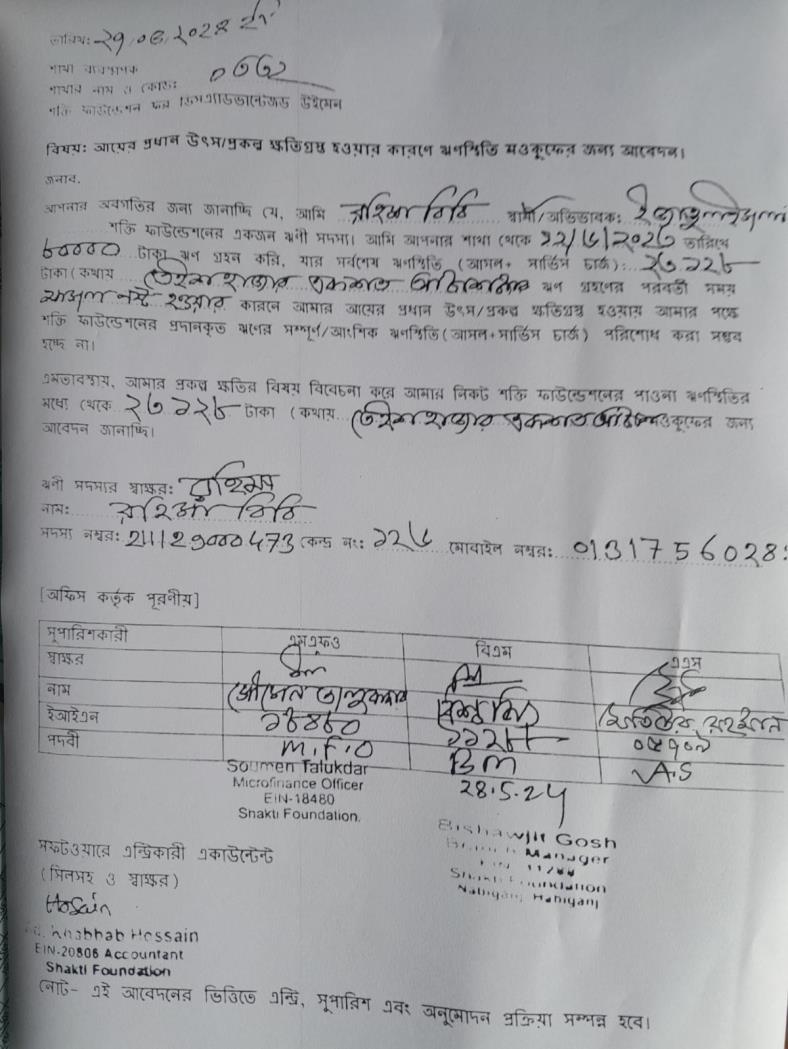 তারিখ: ২৭/০৫/২০২৪ ইং
শাখা ব্যবস্থাপক
শাখার নাম ও কোডঃ
শক্তি ফাউন্ডেশন ফর ডিসএ্যাডভান্টেজড উইমেন
বিষয়: আয়ের প্রধান উৎস/প্রকল্প ক্ষতিগ্রস্থ হওয়ার কারণে ঋণস্থিতি মওকুফের জন্য আবেদন।
জনাব,
আপনার অবগতির জন্য জানাচ্ছি যে, আমি রহিমা বিবি স্বামী/অভিভাবক:
শক্তি ফাউন্ডেশনের একজন ঋণী সদস্য। আমি আপনার শাখা থেকে ১২/৬/২০২৩ তারিখে
৮০০০০ টাকা ঋণ গ্রহন করি, যার সর্বশেষ ঋণস্থিতি (আসল+ সার্ভিস চার্জ): ২৩১২৮
টাকা (কথায় তেইশ হাজার একশত আটাশ ঋণ গ্রহণের পরবর্তী সময়
ফসল নস্ট হওয়ার কারনে আমার আয়ের প্রধান উৎস/প্রকল্প ক্ষতিগ্রস্থ হওয়ায় আমার পক্ষে
শক্তি ফাউন্ডেশনের প্রদানকৃত ঋণের সম্পূর্ণ/আংশিক ঋণস্থিতি (আসল+সার্ভিস চার্জ) পরিশোধ করা সম্ভব
হচ্ছে না।
এমতাবস্থায়, আমার প্রকল্প ক্ষতির বিষয় বিবেচনা করে আমার নিকট শক্তি ফাউন্ডেশনের পাওনা ঋণস্থিতির
মধ্যে থেকে ২৩১২৮ টাকা (কথায় তেইশ হাজার একশত আটাশ মওকুফের জন্য
আবেদন জানাচ্ছি।
ঋণী সদস্যর স্বাক্ষর: রহিমা
নাম: রহিমা বিবি
সদস্য নম্বর: 211129000473 কেন্দ্র নং: ১২৬ মোবাইল নম্বর: 0131756028
[অফিস কর্তৃক পূরণীয়]
সুপারিশকারী এমএফও বিএম এএস
স্বাক্ষর
নাম সৌমেন তালুকদার বিশ্বজিৎ
ইআইএন ১৮৪৮০
পদবী M.F.O BM A.S
Soumen Talukdar
Microfinance Officer
EIN-18480
Shakti Foundation.
28.5.24
Bishawjit Gosh
Branch Manager
Shakti Foundation
Nabiganj Habiganj
সফটওয়ারে এন্ট্রিকারী একাউন্টেন্ট
(সিলসহ ও স্বাক্ষর)
Hossain
Khabbab Hossain
EIN-20806 Accountant
Shakti Foundation
নোট- এই আবেদনের ভিত্তিতে এন্ট্রি, সুপারিশ এবং অনুমোদন প্রক্রিয়া সম্পন্ন হবে।